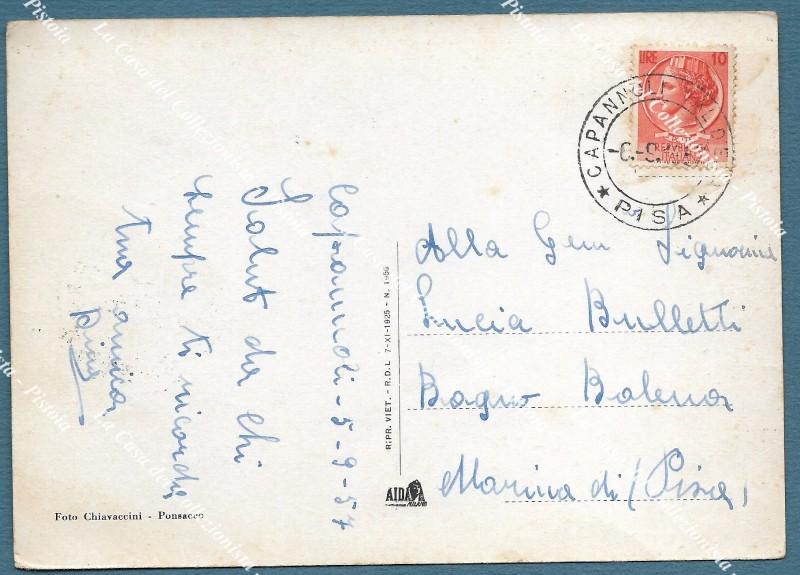 LIRE 10
REPUBBLICA
ITALIANA
CAPANNOLI
★ PISA ★
Capannoli-5-9-57
Saluti da chi
sempre ti ricorda
tua amica
Alla Gem Signorina
Lucia Bulletti
Bagno Balena
Marina di (Pisa)
RIPR. VIET. - R.D.L. 7-XI-1925 - N. 1950
AIDA
MILANO
Foto Chiavaccini - Ponsacco
La Casa del Collezionista - Pistoia